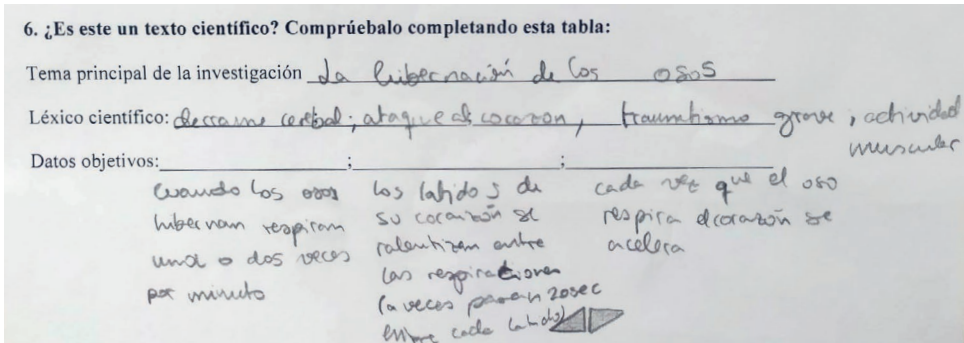 6. ¿Es este un texto científico? Compruébalo completando esta tabla:
Tema principal de la investigación La hibernación de los osos
Léxico científico: derrame cerebal; ataque al corazon, traumatismo grave, actividad
muscular
Datos objetivos: ; ;
cuando los osos
hibernan respiran
una o dos veces
por minuto
los latidos de
su corazón se
ralentizan entre
las respiraciones
(a veces pasan 20sec
entre cada latido)
cada vez que el oso
respira el corazón se
acelera